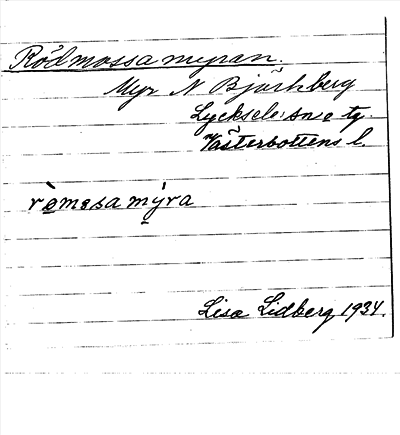 Rödmossamyran.
Myr N Björkberg
Lycksele sn o tg.
Västerbottens l.
ròmosa mýra
Lisa Lidberg 1934.